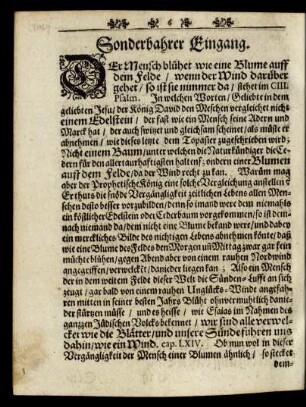 6
Sonderbahrer Eingang.
DEr Mensch blühet wie eine Blume auff
dem Felde / wenn der Wind darüber
gehet / so ist sie nimmer da / stehet im CIII.
Psalm. In welchen Worten / Geliebte in dem
geliebten Jesu / der König David den Menschen vergleichet nicht
einem Edelstein / der fast wie ein Mensch seine Adern und
Marck hat / der auch schwitzt und gleichsam scheinet / als müste er
abnehmen / wie dieses letzte dem Topasier zugeschrieben wird;
Nicht einem Baum / unter welchen die Naturkündiger die Ce-
dern für den allerdauerhafftigsten halten; sondern einer Blumen
auff dem Felde / da der Wind recht zu kan. Warum mag
aber der Prophetische König eine solche Vergleichung anstellen?
Er thuts die schnöde Vergänglichkeit zeitlichen Lebens allen Men-
schen desto besser vorzubilden / denn so jemand were dem niemahls
ein köstlicher Edelstein oder Cederbaum vorgekommen / so ist den-
noch niemand da / dem nicht eine Blume bekand were / und dabey
ein merckliches Bilde des nichtigen Lebens abnehmen könte / daß
wie eine Blume des Feldes den Morgen und Mittag zwar gar fein
müchte blühen / gegen Abend aber von einem rauhen Nordwind
angegriffen / verwelcket / danieder liegen kan; Also ein Mensch
der in dem weiten Felde dieser Welt die Sünden-Lufft an sich
zeugt / gar bald von einem rauhen Unglücks-Winde angefah-
ren mitten in seiner besten Jahrs Blüht ohnvermuhtlich danie-
der stürtzen müsse / und es heisse / wie Esaias im Nahmen des
gantzen Jüdischen Volcks bekennet / wir sind alle verwel-
cket wie die Blätter / und unsere Sünde führen uns
dahin / wie ein Wind. cap. LXIV. Ob nun wol in dieser
Vergängligkeit der Mensch einer Blumen ähnlich / so stecket
dem-